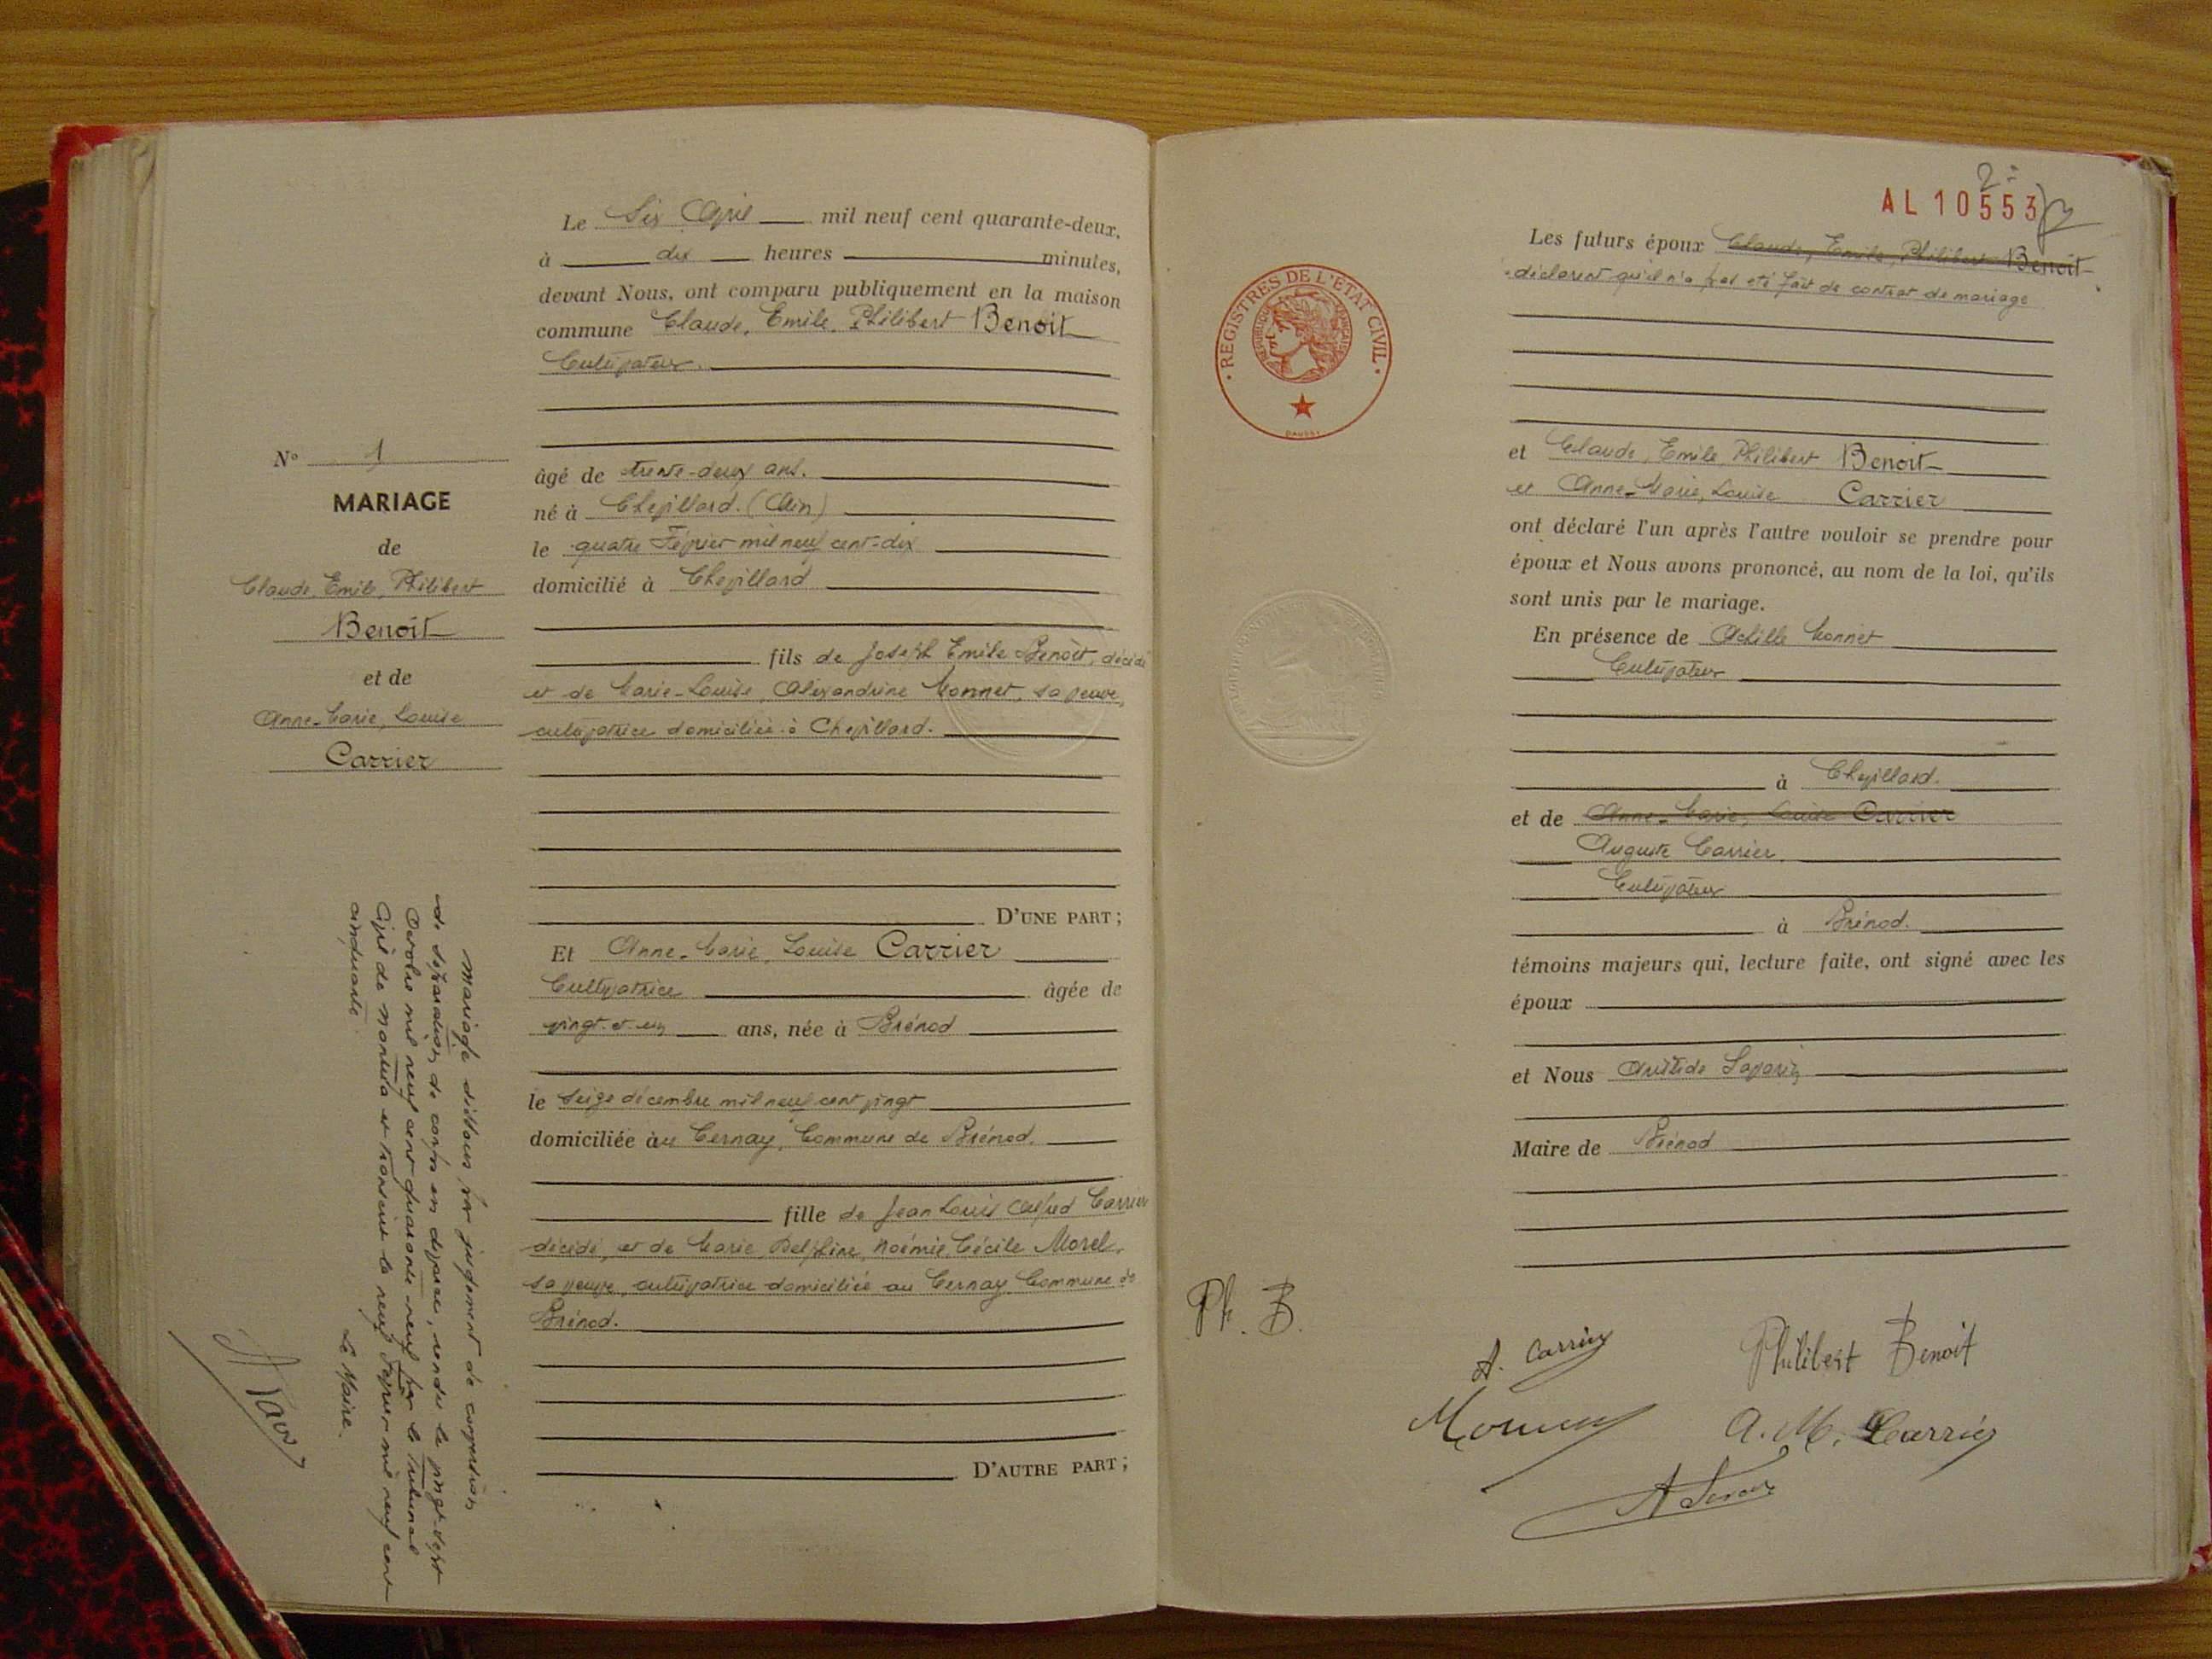 N° 1
MARIAGE
de
Claude, Emile, Philibert
Benoit
et de
Anne-Marie, Louise
Carrier
mariage dissous par jugement de conversion
de séparation de corps en divorce, rendu le vingt-sept
Octobre mil neuf cent quarante-neuf par le Tribunal
Civil de Nantua et transcrit le neuf Février mil neuf cent
cinquante.
Le Maire.
Le Six Avril mil neuf cent quarante-deux,
à dix heures minutes,
devant Nous, ont comparu publiquement en la maison
commune Claude, Emile, Philibert Benoit
Cultivateur.
âgé de trente-deux ans.
né à Chevillard. (Ain)
le quatre Février mil neuf cent-dix
domicilié à Chevillard
fils de Joseph Emile Benoit, décédé
et de Marie-Louise, Alexandrine Monnet, sa veuve,
cultivatrice domiciliée à Chevillard.
D'UNE PART ;
Et Anne-Marie, Louise Carrier
Cultivatrice âgée de
vingt-et-un ans, née à Brénod
le seize décembre mil neuf cent vingt
domiciliée au Cernay, Commune de Brénod.
fille de Jean Louis Alfred Carrier
décédé, et de Marie Delphine, Noémie, Cécile Morel,
sa veuve, cultivatrice domiciliée au Cernay Commune de
Brénod.
D'AUTRE PART ;
2
AL 10553
REGISTRES DE L'ÉTAT CIVIL
RÉPUBLIQUE FRANÇAISE
Les futurs époux Claude, Emile, Philibert Benoit
déclarent qu'il n'a pas été fait de contrat de mariage
et Claude, Emile, Philibert Benoit
et Anne-Marie, Louise Carrier
ont déclaré l'un après l'autre vouloir se prendre pour
époux et Nous avons prononcé, au nom de la loi, qu'ils
sont unis par le mariage.
En présence de Achille Monnet
Cultivateur
à Chevillard.
et de Anne-Marie, Louise Carrier
Auguste Carrier.
Cultivateur
à Brénod.
témoins majeurs qui, lecture faite, ont signé avec les
époux
et Nous Aristide Savarin
Maire de Brénod
Ph. B.
A. Carrier
Philibert Benoit
Monnet
A. M. Carrier